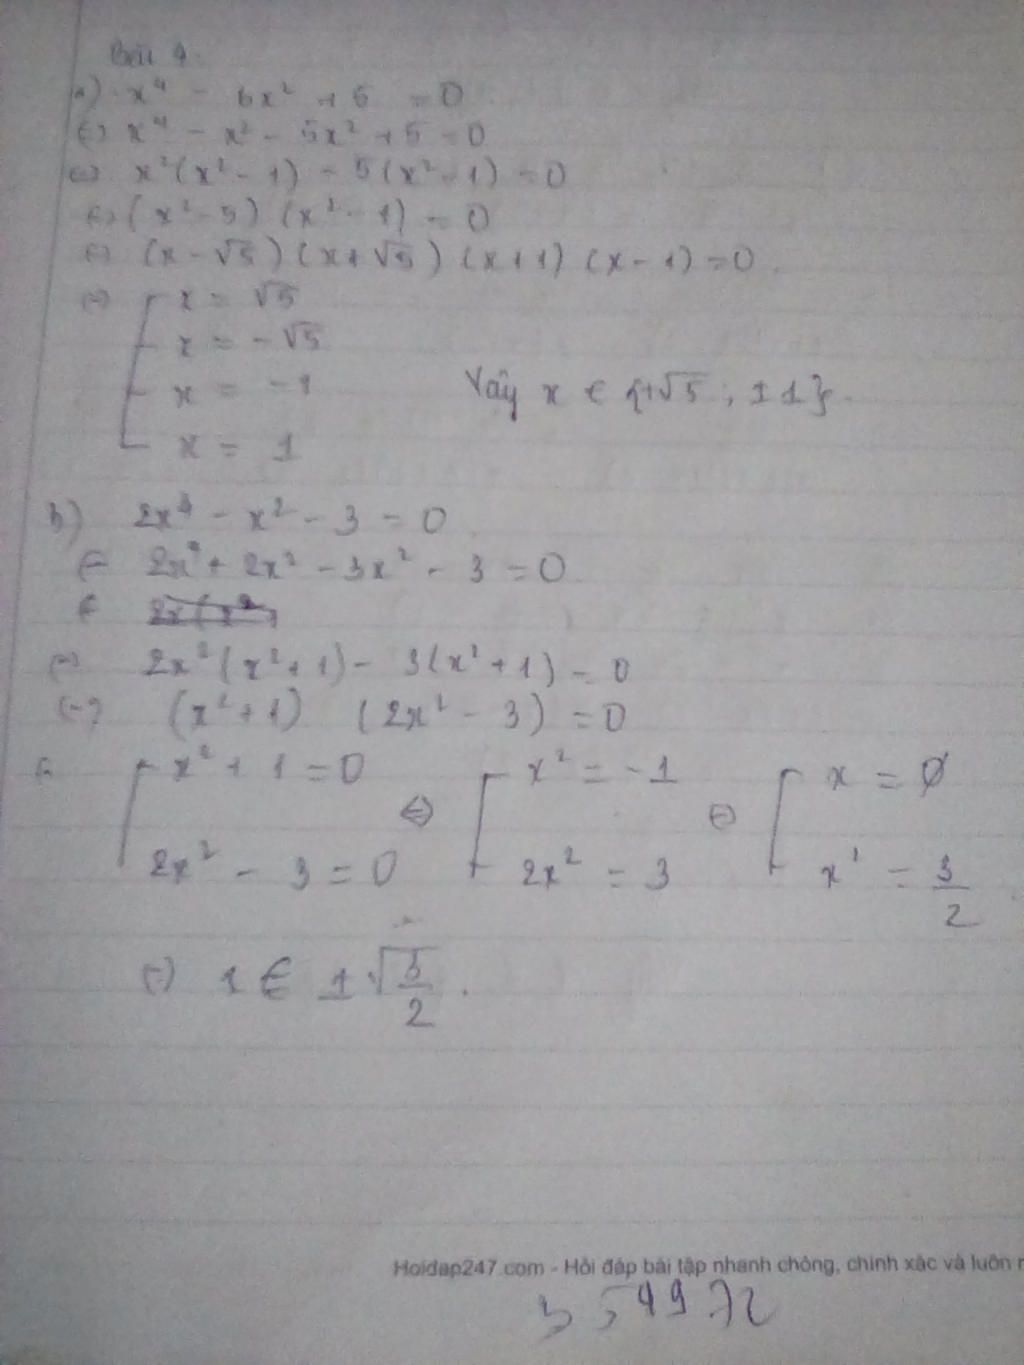 Bài 4.
a) x⁴ - 6x² + 5 = 0
(=) x⁴ - x² - 5x² + 5 = 0
(=) x²(x² - 1) - 5(x² - 1) = 0
(=) (x² - 5) (x² - 1) = 0
(=) (x - √5) (x + √5) (x + 1) (x - 1) = 0.
(=) [ x = √5
x = -√5
x = -1
Vây x ∈ {±√5 ; ±1}.
x = 1
b) 2x⁴ - x² - 3 = 0.
(= 2x⁴ + 2x² - 3x² - 3 = 0
(=) 2x²(x² + 1) - 3(x² + 1) = 0
(=) (x² + 1) (2x² - 3) = 0
(= [ x² + 1 = 0 (=) [ x² = -1 (=) [ x = ∅
2x² - 3 = 0 2x² = 3 x² = 3/2
(=) x ∈ ±√3/2.
Hoidap247.com - Hỏi đáp bài tập nhanh chóng, chính xác và luôn